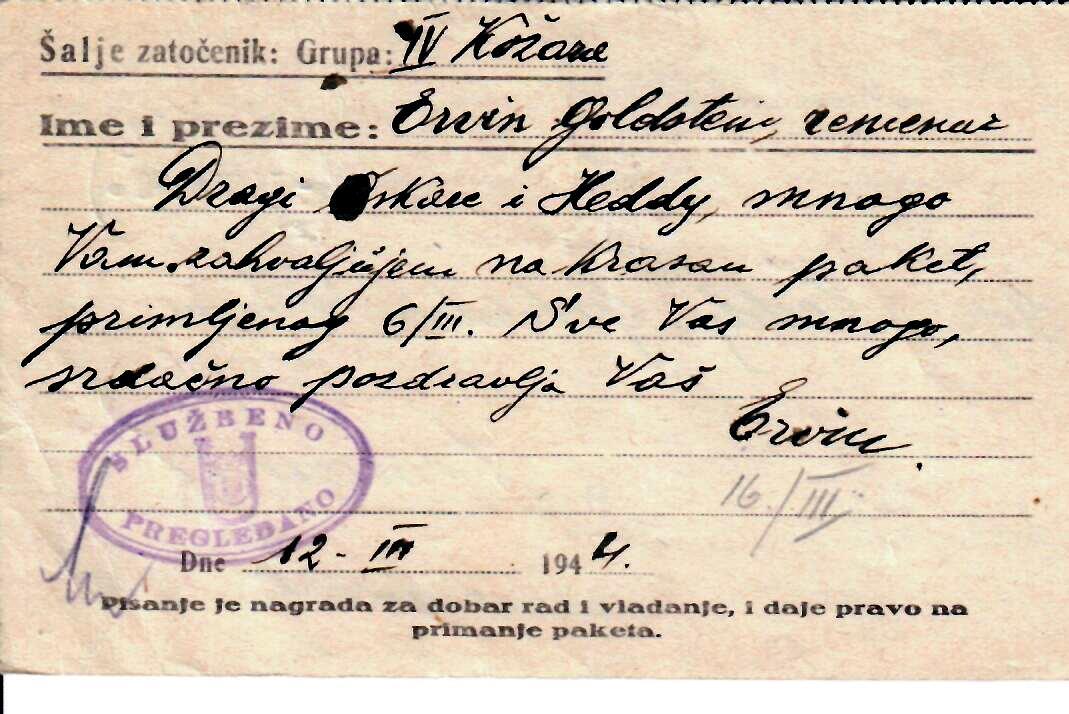 Šalje zatočenik: Grupa: IV Kožara
Ime i prezime: Ervin Goldstein, remenar
Dragi Oskare i Heddy, mnogo
Vam zahvaljujem na krasan paket,
primljenog 6/III. Sve Vas mnogo,
srdačno pozdravlja Vaš
Ervin
16/III
SLUŽBENO
PREGLEDANO
Dne 12 - III 1944.
Pisanje je nagrada za dobar rad i vladanje, i daje pravo na
primanje paketa.